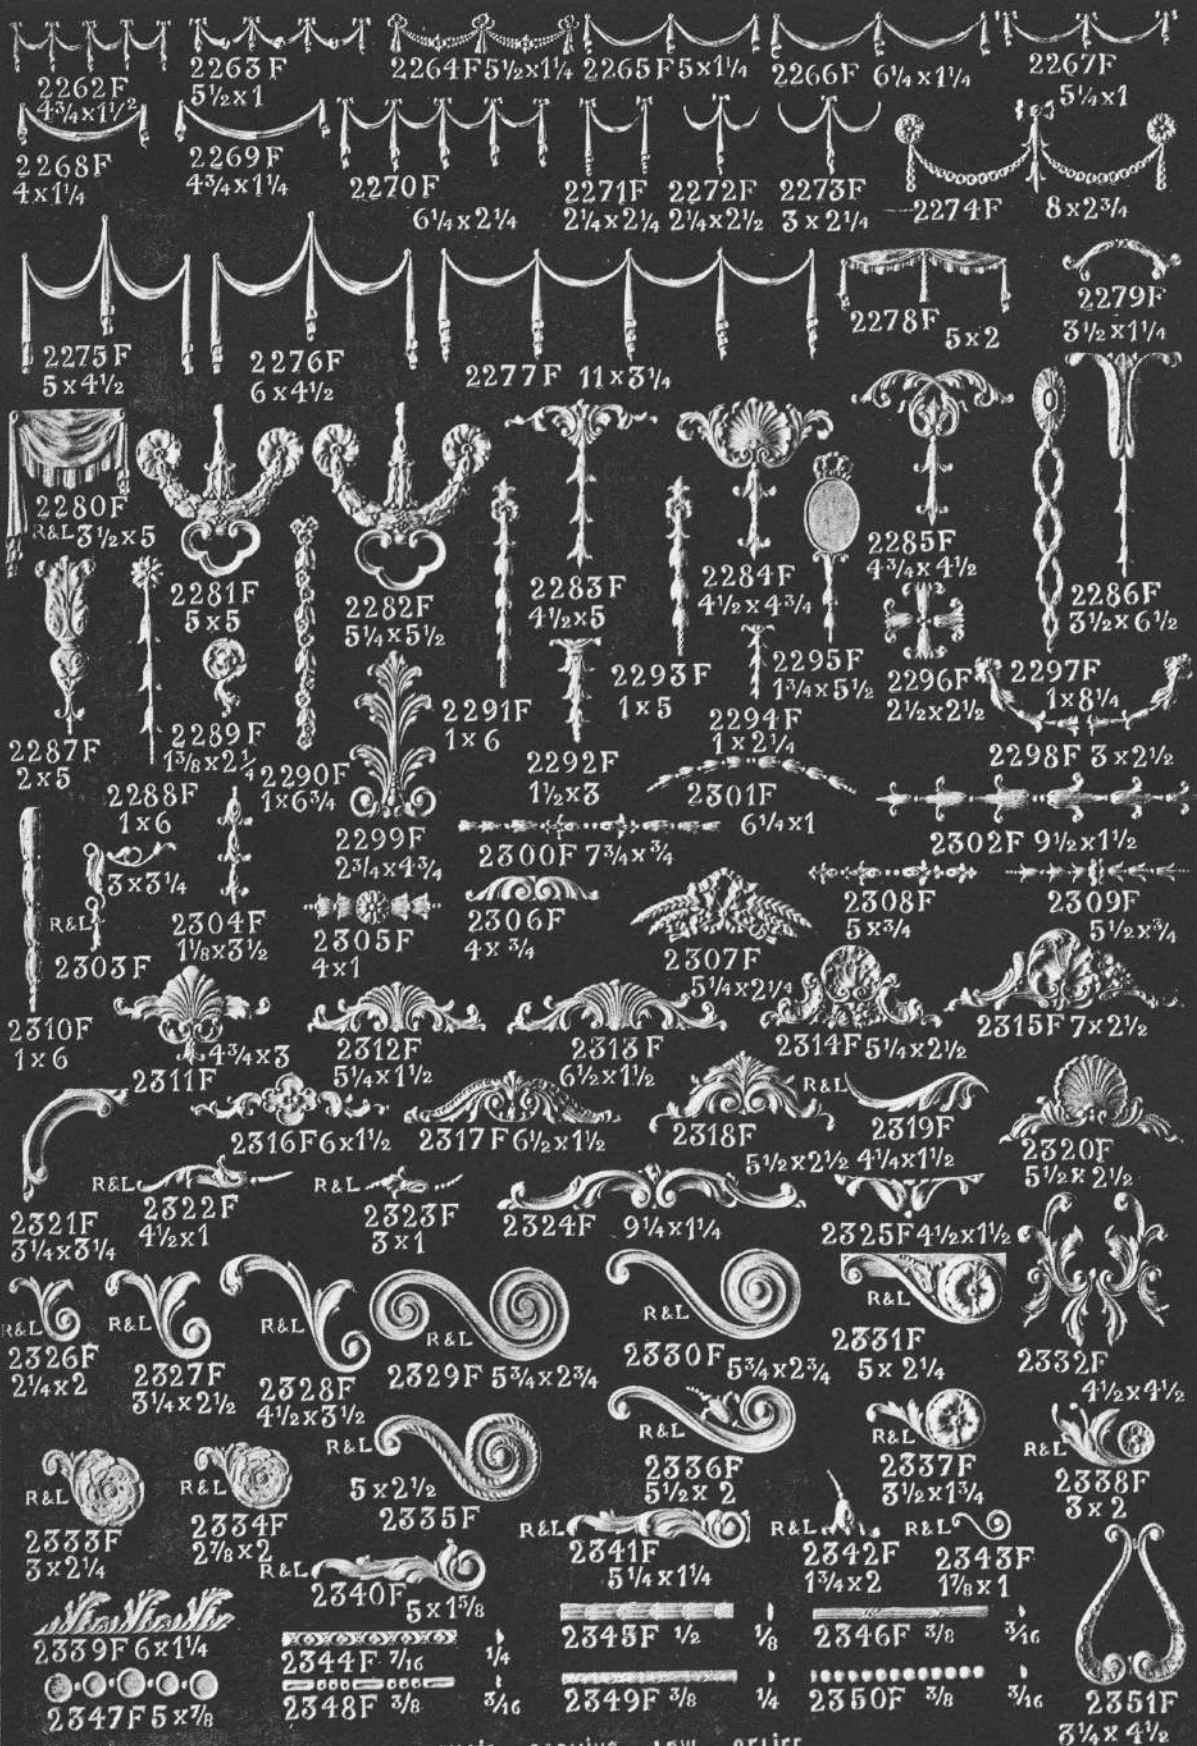 2262F
4¾x1½
2263F
5½x1
2264F 5½x1¼
2265F 5x1¼
2266F 6¼x1¼
2267F
5¼x1
2268F
4x1¼
2269F
4¾x1¼
2270F
6¼x2¼
2271F
2¼x2¼
2272F
2¼x2½
2273F
3x2¼
2274F 8x2¾
2275F
5x4½
2276F
6x4½
2277F 11x3¼
2278F
5x2
2279F
3½x1¼
2280F
R&L 3½x5
2281F
5x5
2282F
5¼x5½
2283F
4½x5
2284F
4½x4¾
2285F
4¾x4½
2286F
3½x6½
2287F
2x5
2288F
1x6
2289F
1⅜x2¼
2290F
1x6¾
2291F
1x6
2292F
1½x3
2293F
1x5
2294F
1x2¼
2295F
1¾x5½
2296F
2½x2½
2297F
1x8¼
2298F 3x2½
2299F
2¾x4¾
2300F 7¾x¾
2301F
6¼x1
2302F 9½x1½
3x3¼
R&L
2303F
2304F
1⅛x3½
2305F
4x1
2306F
4x¾
2307F
5¼x2¼
2308F
5x¾
2309F
5½x¾
2310F
1x6
4¾x3
2311F
2312F
5¼x1½
2313F
6½x1½
2314F 5¼x2½
2315F 7x2½
2316F 6x1½
2317F 6½x1½
2318F
5½x2½
R&L
2319F
4¼x1½
2320F
5½x2½
2321F
3¼x3¼
R&L
2322F
4½x1
R&L
2323F
3x1
2324F 9¼x1¼
2325F 4½x1½
R&L
2326F
2¼x2
R&L
2327F
3¼x2½
R&L
2328F
4½x3½
R&L
2329F 5¾x2¾
R&L
2330F 5¾x2¾
R&L
2331F
5x2¼
2332F
4½x4½
R&L
2333F
3x2¼
R&L
2334F
2⅞x2
R&L
5x2½
2335F
R&L
2336F
5½x2
R&L
2337F
3½x1¾
R&L
2338F
3x2
2339F 6x1¼
R&L
2340F
5x1⅝
R&L
2341F
5¼x1¼
R&L
2342F
1¾x2
R&L
2343F
1⅞x1
2344F 7/16 ¼
2345F ½ ⅛
2346F ⅜ 3/16
2347F 5x⅞
2348F ⅜ 3/16
2349F ⅜ ¼
2350F ⅜ 3/16
2351F
3¼x4½
LOW RELIEF